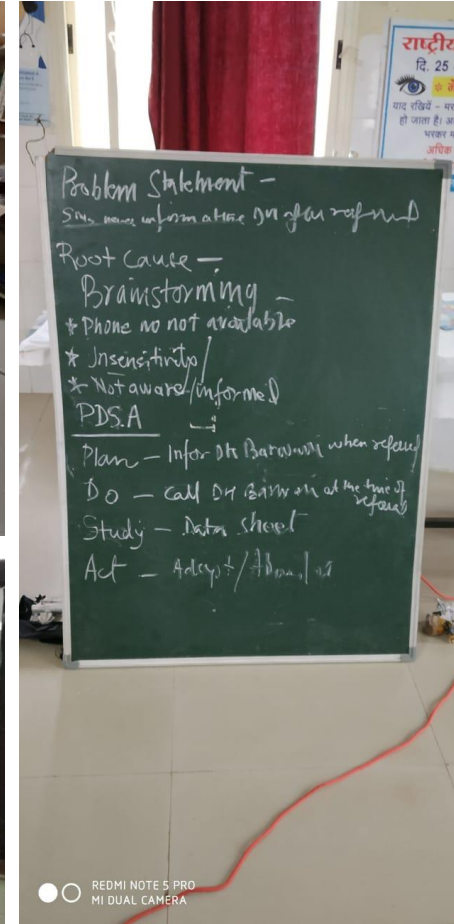 राष्ट्रीय
दि. 25
याद रखियें - मर
हो जाता है। अ
भरकर म
अधिक
Problem Statement -
inform after referred
Root cause -
Brainstorming -
* Phone no not available
* Insensitivity/
* Not aware/informed
PDSA
Plan - Infor DH Barwani when referred
Do - Call DH Barwani at the time of
referral
Study - Data sheet
Act - Adopt/
REDMI NOTE 5 PRO
MI DUAL CAMERA